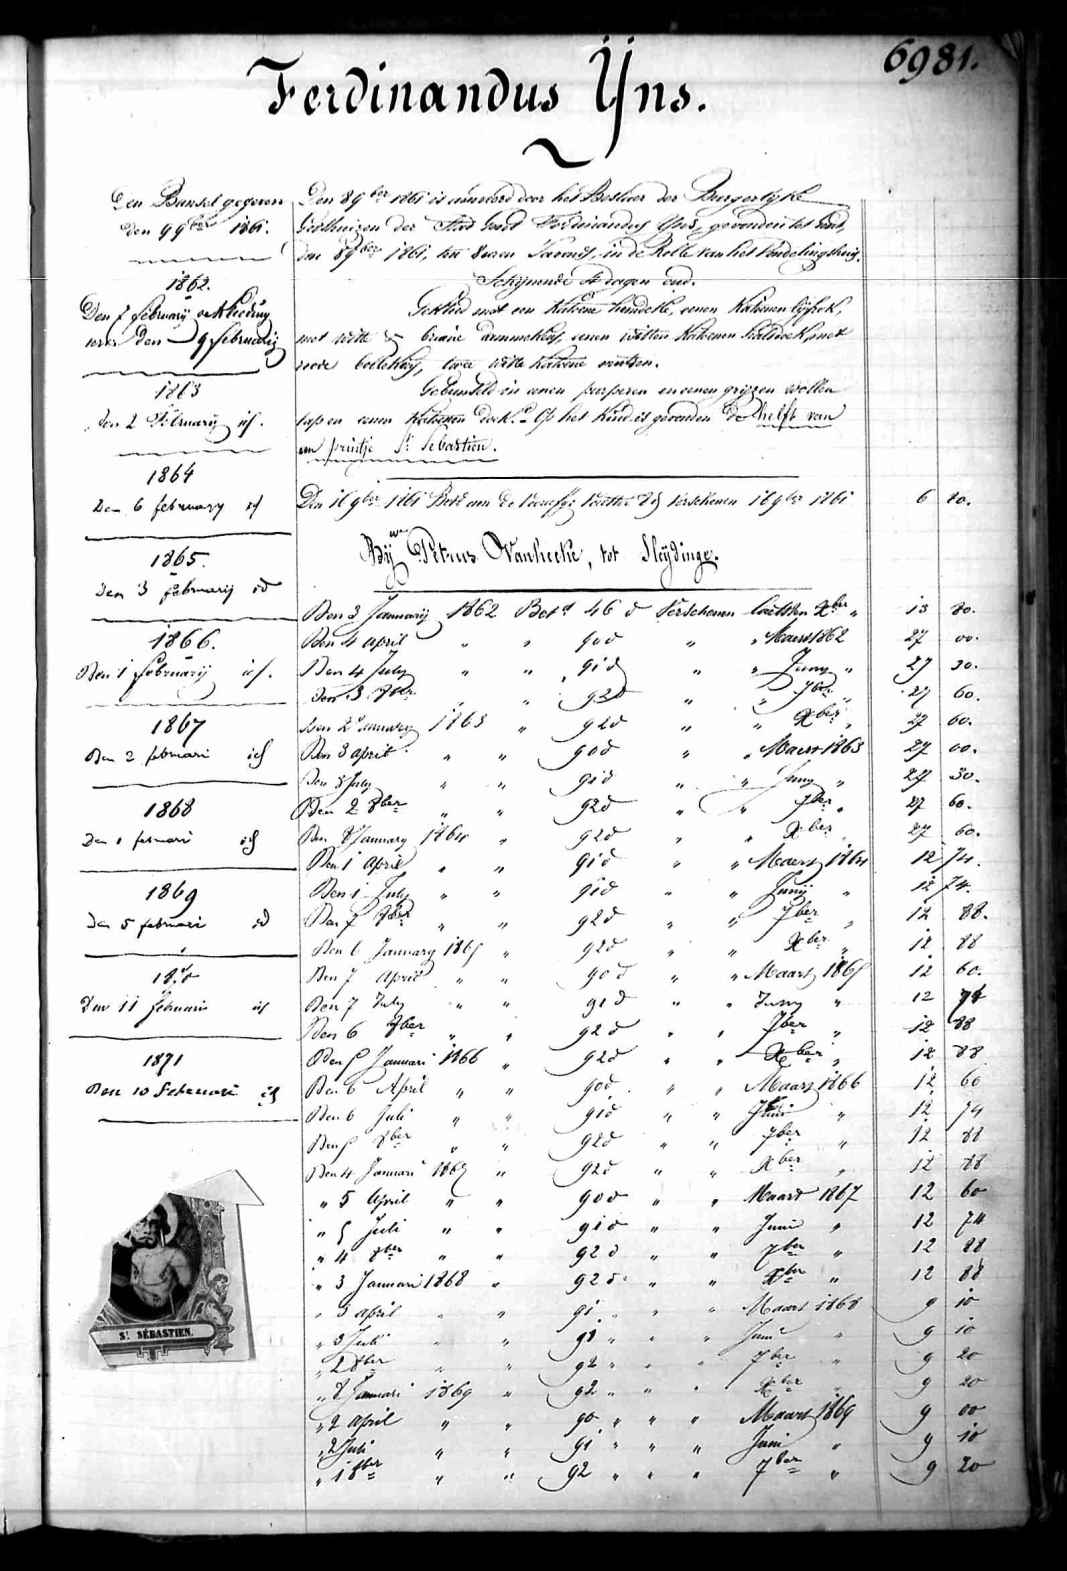 6981.
Ferdinandus Ijns.
Den Bundel gegeven
den 9 9ber 1861.
1862.
Den 7 february verkleeding
den 9 february
1863
den 2 February id.
1864
Den 6 february id
1865.
den 3 februarij id
1866.
Den 1 februarij id.
1867
Den 2 februari id
1868
Den 1 februari id
1869
den 5 februari id
Den 11 februari id
1871
Den 10 februari id
Den 8 9ber 1861 is aanveerd door het Bestier der Burgerlyke
Godshuizen der Stad Gend Ferdinandus Yns, gevonden tot Gend,
den 8 9ber 1861, ten 8 uren 's avonds, in de Rolle van het Vondelinghuis.
Schijnende dagen oud.
Gekleed met een katoene hemdeke, eenen katoenen lijfrok,
met witte bruine eenen witten katoenen met
roode twee witte katoene mutsen.
Gebundeld in eenen purperen en eenen gryzen wollen
lap en eenen katoenen doek. Op het kind is gevonden de helft van
een printje St Sebastien.
Den 16 9ber 1861 Bet. aan de verschenen 16 9ber 1861 6 80.
Bij we Petrus Vanhecke, tot Sleydinge.
Den 3 Januarij 1862 Bet. 46 d Verschenen laetsten Xber " 13 80.
Den 4 april " " 90 d " " Maert 1862 27 00.
Den 4 July " " 91 d " " Juny " 27 30.
Den 3 8ber " 92 d " " 7ber " 27 60.
Den 2 January 1863 " 92 d " " Xber " 27 60.
Den 3 april " " 90 d " " Maert 1863 27 00.
Den 3 July " " 91 d " " Juny " 27 30.
Den 2 8ber " " 92 d " " 7ber " 27 60.
Den 8 January 1864 " 92 d " " Xber " 27 60.
Den 1 April " " 91 d " " Maert 1864 12 74.
Den 1 July " " 91 d " " Junij " 12 74.
Den 7 8ber " " 92 d " " 7ber " 12 88.
Den 6 January 1865 " 92 d " " Xber " 12 88
Den 7 April " " 90 d " " Maart 1865 12 60.
Den 7 July " " 91 d " " Juny " 12 74
Den 6 8ber " " 92 d " " 7ber " 12 88
Den 5 Januari 1866 " 92 d " " Xber " 12 88
Den 6 April " " 90 d " " Maart 1866 12 60
Den 6 Juli " " 91 d " " Juni " 12 74
Den 5 8ber " " 92 d " " 7ber " 12 88
Den 4 Januari 1867 " 92 d " " Xber " 12 88
" 5 April " " 90 d " " Maart 1867 12 60
" 5 Juli " " 91 d " " Juni " 12 74
" 4 8ber " " 92 d " " 7ber " 12 88
" 3 Januari 1868 " 92 d " " Xber " 12 88
" 3 april " " 91 " " " Maart 1868 9 10
" 3 Juli " " 91 " " " Juni " 9 10
" 2 8ber " " 92 " " " 7ber " 9 20
" 2 Januari 1869 " 92 " " " Xber " 9 20
" 2 april " " 90 " " " Maart 1869 9 00
" 2 Juli " " 91 " " " Juni " 9 10
" 1 8ber " " 92 " " " 7ber " 9 20
ST SÉBASTIEN.